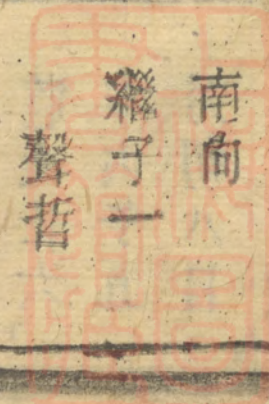 南向
繼子一
聲哲